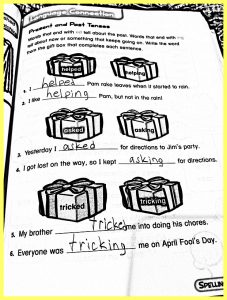 Language Connection
Present and Past Tenses
Words that end with ed tell about the past. Words that end with ing
tell about now or something that keeps going on. Write the word
from the gift box that completes each sentence.
helped helping
1. I helped Pam rake leaves when it started to rain.
2. I like helping Pam, but not in the rain!
asked asking
3. Yesterday I asked for directions to Jim's party.
4. I got lost on the way, so I kept asking for directions.
tricked tricking
5. My brother tricked me into doing his chores.
6. Everyone was tricking me on April Fool's Day.
SPELLING